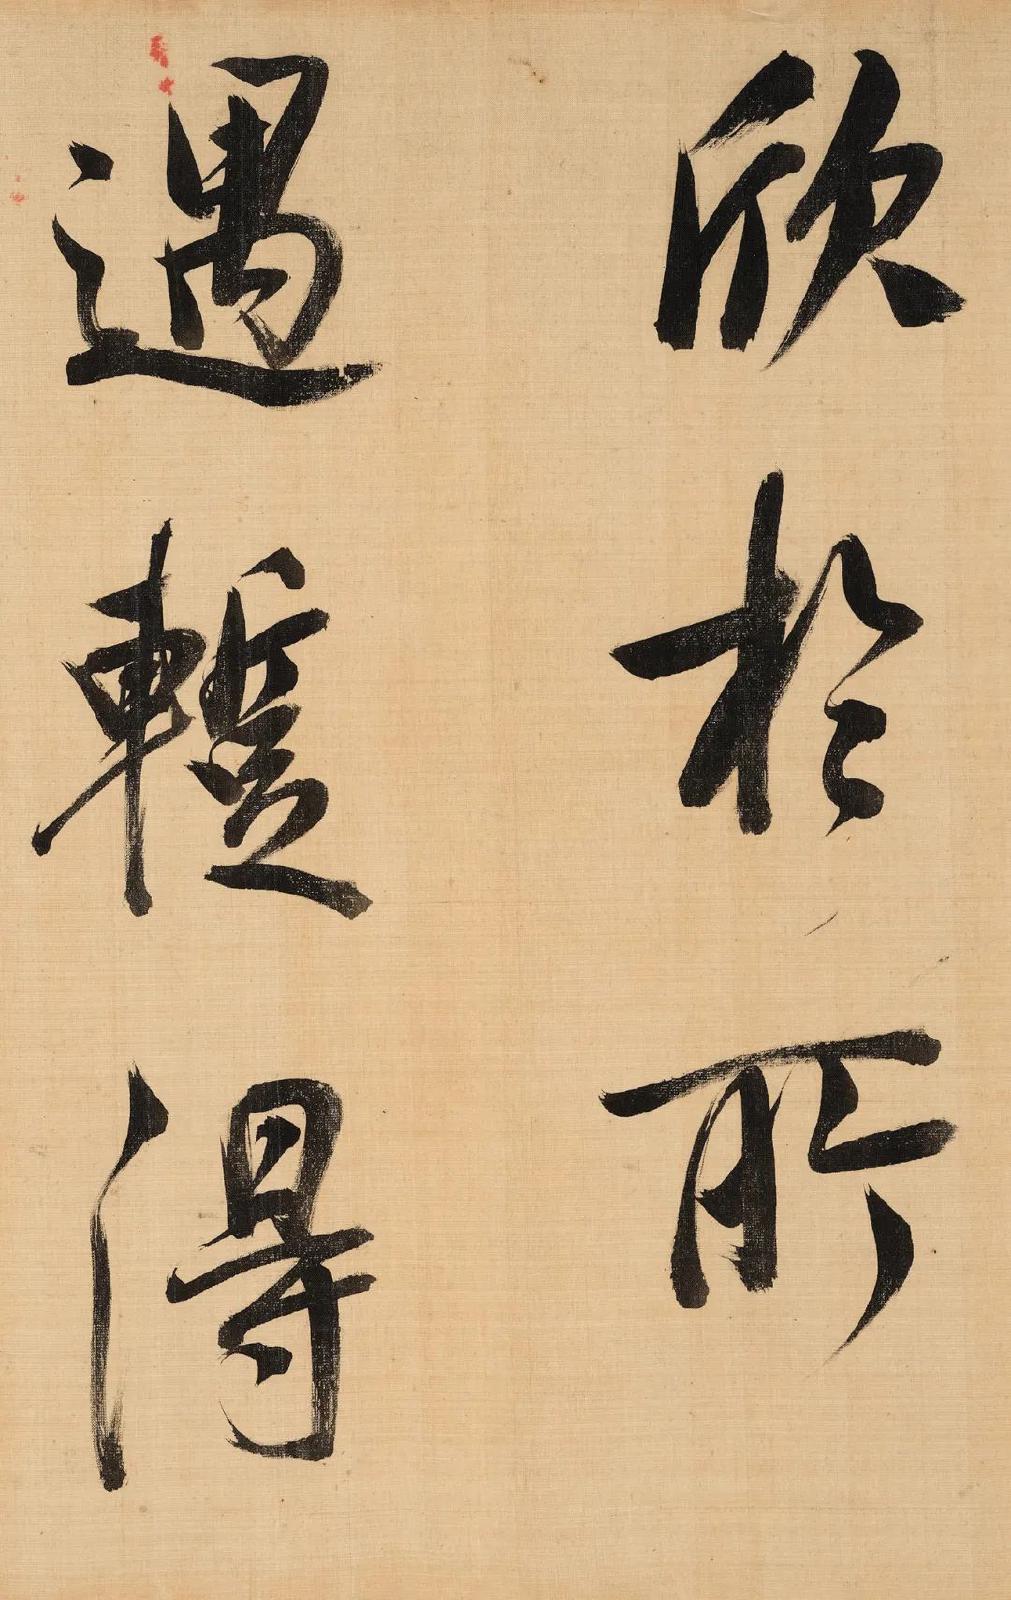 欣於所
遇蹔得